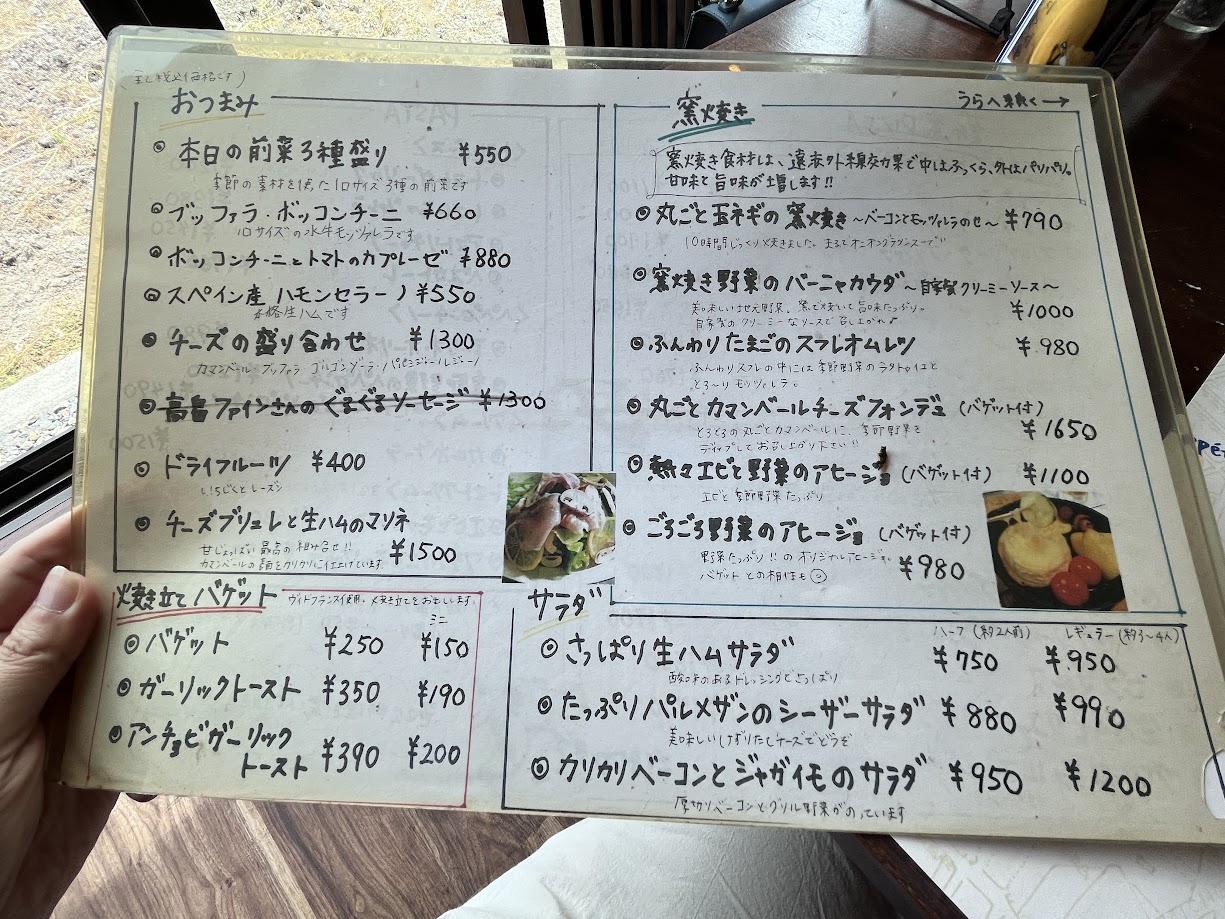 おつまみ
本日の前菜3種盛り ¥550
季節の素材を使った1口サイズ3種の前菜です
ブッファラ・ボッコンチーニ ¥660
1口サイズの水牛モッツァレラです
ボッコンチーニとトマトのカプレーゼ ¥880
スペイン産ハモンセラーノ ¥550
本格生ハムです
チーズの盛り合わせ ¥1300
カマンベール・ブッファラ・ゴルゴンゾーラ・パルミジャーノレジャーノ
高畠ファインさんのぐるぐるソーセージ ¥1300
ドライフルーツ ¥400
いちじくとレーズン
チーズブリュレと生ハムのマリネ
甘じょっぱい最高の組み合せ!!
カマンベールの顔をカリカリに仕上げています
¥1500
焼き立てバゲット
ヴィドフランス使用。焼き立てをお出しします。
ミニ
バゲット ¥250 ¥150
ガーリックトースト ¥350 ¥190
アンチョビガーリック
トースト ¥390 ¥200
窯焼き
うらへ続く→
窯焼き食材は、遠赤外線効果で中はふっくら、外はパリパリ。
甘味と旨味が増します!!
丸ごと玉ネギの窯焼き ～ベーコンとモッツァレラのせ～ ¥790
10時間じっくり焼きました。まるでオニオングラタンスープ!!
窯焼き野菜のバーニャカウダ ～自家製クリーミーソース～
¥1000
美味しい地元野菜。窯で焼いて旨味たっぷり。
自家製のクリーミーなソースで召し上がれ♪
ふんわりたまごのスフレオムレツ ¥980
ふんわりスフレの中には季節野菜のラタトゥイユと
とろ〜りモッツァレラ。
丸ごとカマンベールチーズフォンデュ (バゲット付)
¥1650
とろとろの丸ごとカマンベールに、季節野菜を
ディップしてお召し上がり下さい!!
熱々エビと野菜のアヒージョ (バゲット付) ¥1100
エビと季節野菜たっぷり
ごろごろ野菜のアヒージョ (バゲット付)
¥980
野菜たっぷり!!のオリジナルアヒージョ。
バゲットとの相性も◎
サラダ
ハーフ (約2人前) レギュラー (約3~4人)
さっぱり生ハムサラダ ¥750 ¥950
酸味のあるドレッシングでさっぱり
たっぷりパルメザンのシーザーサラダ ¥880 ¥990
美味しいけずりたてチーズでどうぞ
カリカリベーコンとジャガイモのサラダ ¥950 ¥1200
厚切りベーコンとグリル野菜がのっています